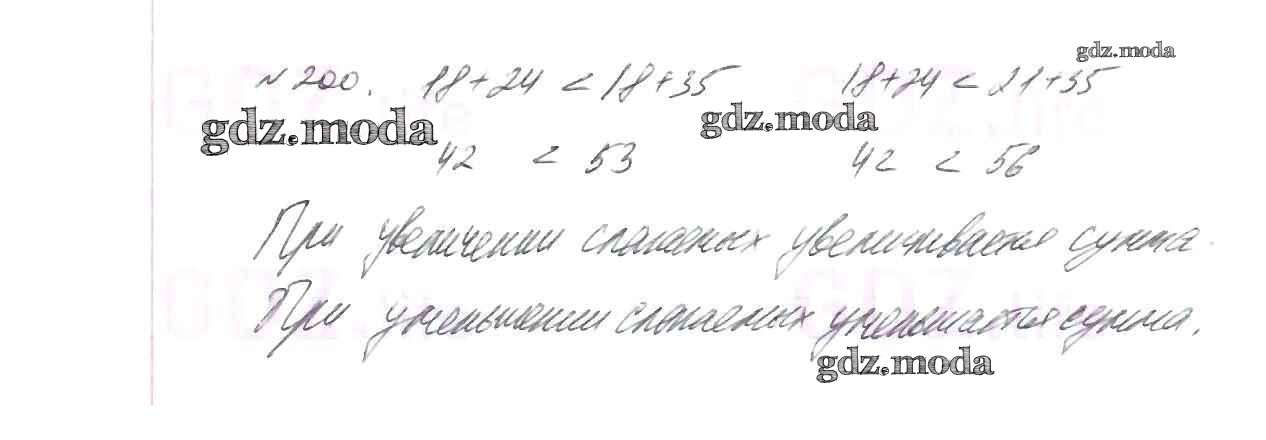 gdz.moda
№ 200. 18+24 < 18+35 18+24 < 21+35
gdz.moda gdz.moda
42 < 53 42 < 56
При увеличении слагаемых увеличивается сумма.
При уменьшении слагаемых уменьшается сумма.
gdz.moda